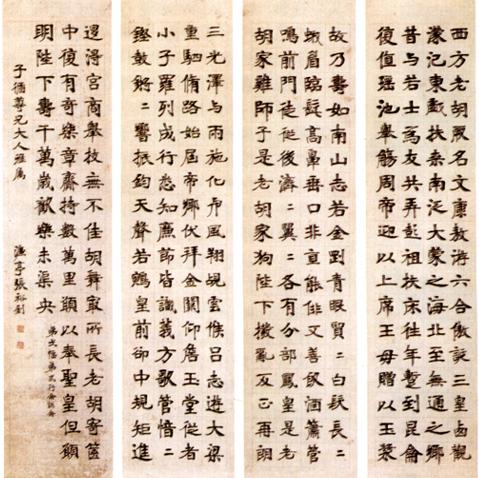 西方老胡厥名文康敖游六合傲誕三皇西觀
濛汜東戲扶桑南泛大蒙之海北至無通之鄉
昔與若士為友共弄彭祖扶床往年暫到昆侖
復值瑤池舉觴周帝迎以上席王母贈以玉漿
故乃壽如南山志若金剛青眼眢二白髮長二
蛾眉臨髭高鼻垂口非直能俳又善飲酒簫管
鳴前門徒從後濟二翼二各有分部鳳皇是老
胡家雞師子是老胡家狗陛下撥亂反正再朗
三光澤與雨施化與風翔覘雲候呂志遊大梁
重駟脩路始屆帝鄉伏拜金闕仰居玉堂從者
小子羅列成行悉知廉節皆識義方歌管愔二
鏗鼓鏘二響振鈞天聲若鵷皇前卻中規矩進
退得宮商舉技無不佳胡舞最所長老胡寄篋
中復有奇樂章齎持數萬里願以奉聖皇但願
明陛下壽千萬歲歡樂未渠央
子循尊兄大人雅屬
濂亭張裕釗